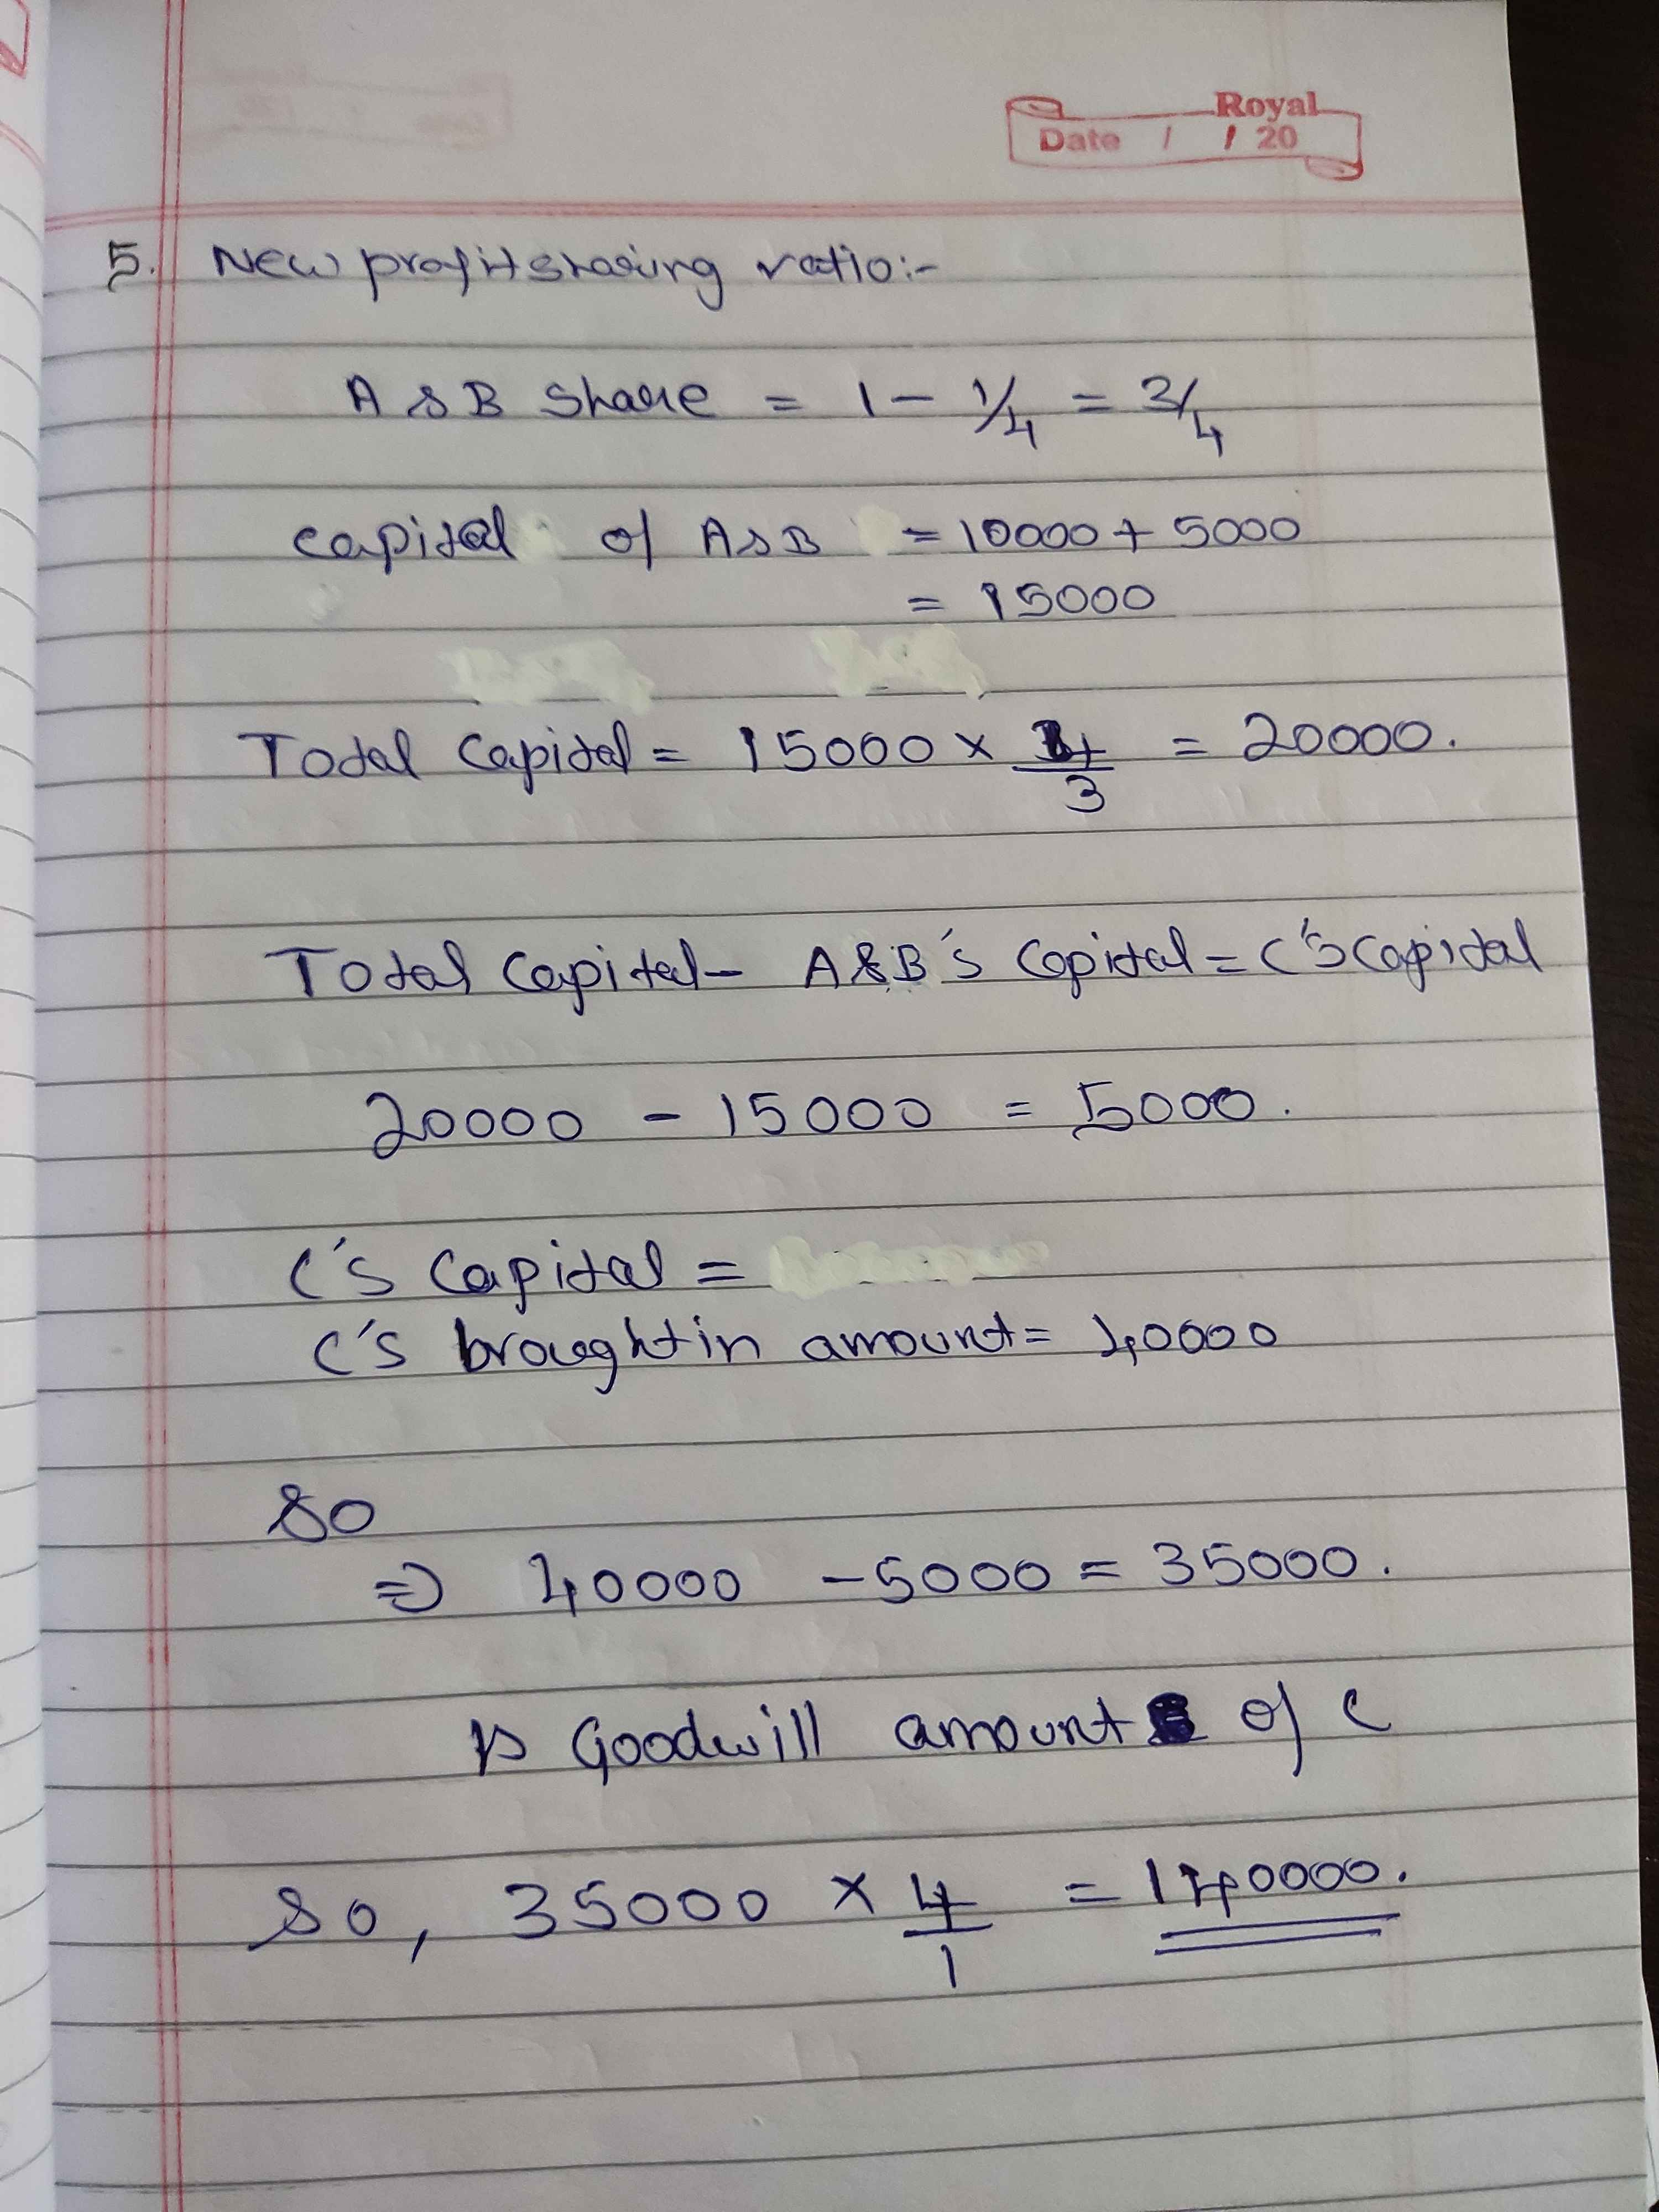 Royal
Date / / 20
5. New profit sharing ratio:-
A & B Share = 1 - 1/4 = 3/4
Capital of A & B = 10000 + 5000
= 15000
Total Capital = 15000 × 4/3 = 20000.
Total Capital - A & B's Capital = C's Capital
20000 - 15000 = 5000.
C's Capital =
C's brought in amount = 40000
So
⇒ 40000 - 5000 = 35000.
is Goodwill amount of C
So, 35000 × 4/1 = 140000.